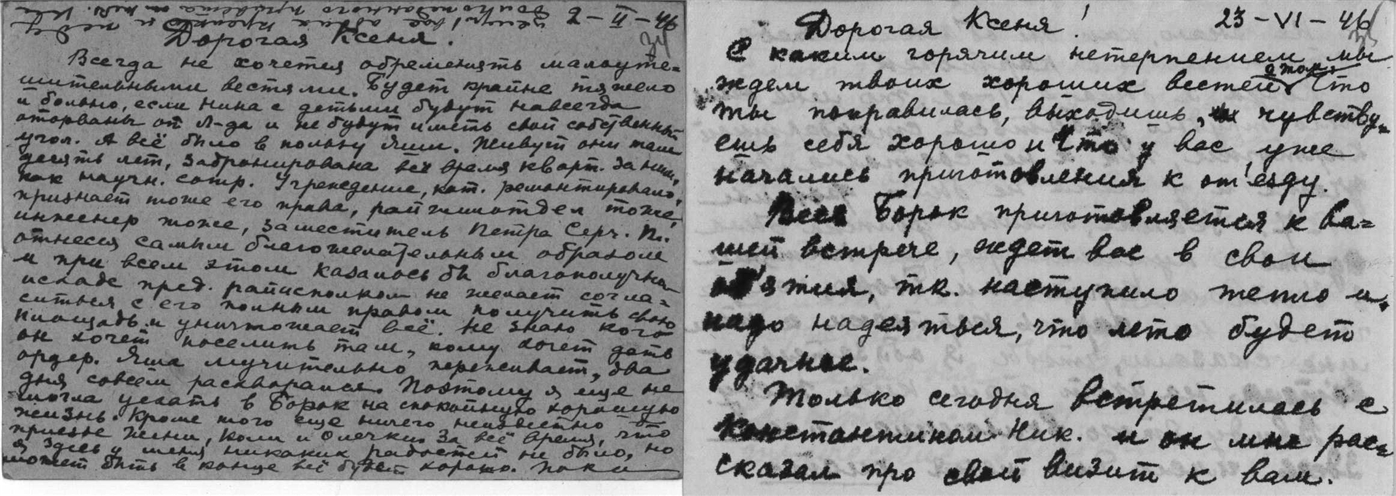 2 – II – 46
Дорогая Ксеня.
Всегда не хочется обременять малоуте=
шительными вестями. Будет крайне тяжело
и больно, если Нина с детьми будут навсегда
оторваны от Л-да и не будут иметь свой собственный
угол. А всё было в пользу Яши. Живут они там
десять лет, забронирована всё время кварт. за ним,
как научн. сотр. Учреждение, кот. ремонтировало,
признает тоже его права, райжилотдел тоже,
инженер тоже, заместитель Петра Серг. П.
отнесся самым благожелательным образом
и при всем этом казалось бы благополучн.
исходе пред. райисполком не желает согла=
ситься с его полным правом получить свою
площадь и уничтожает всё. Не знаю кого
он хочет поселить там, кому хочет дать
ордер. Яша мучительно переживает, два
дня совсем расхворался. Поэтому я еще не
могла уехать в Борок на спокойную хорошую
жизнь. Кроме того еще ничего неизвестно что
приезде Жени, Коли и Олечки. За всё время, что
я здесь у меня никаких радостей не было, но
может быть в конце всё будет хорошо. Пока
23 – VI – 46
Дорогая Ксеня!
С каким горячим нетерпением мы
ждем твоих хороших вестей о том, что
ты поправилась, выходишь, чувству=
ешь себя хорошо и что у вас уже
начались приготовления к от'езду.
Весь Борок приготовляется к ва=
шей встрече, ждет вас в свои
об'ятия, тк. наступило тепло и
надо надеяться, что лето будет
удачное.
Только сегодня встретилась с
Константином Ник. и он мне рас=
сказал про свой визит к вам.